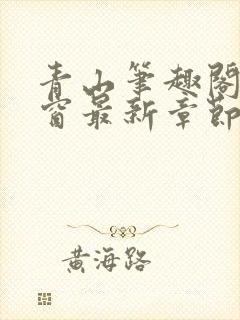 青山筆趣閣
窗最新章節
黃海路